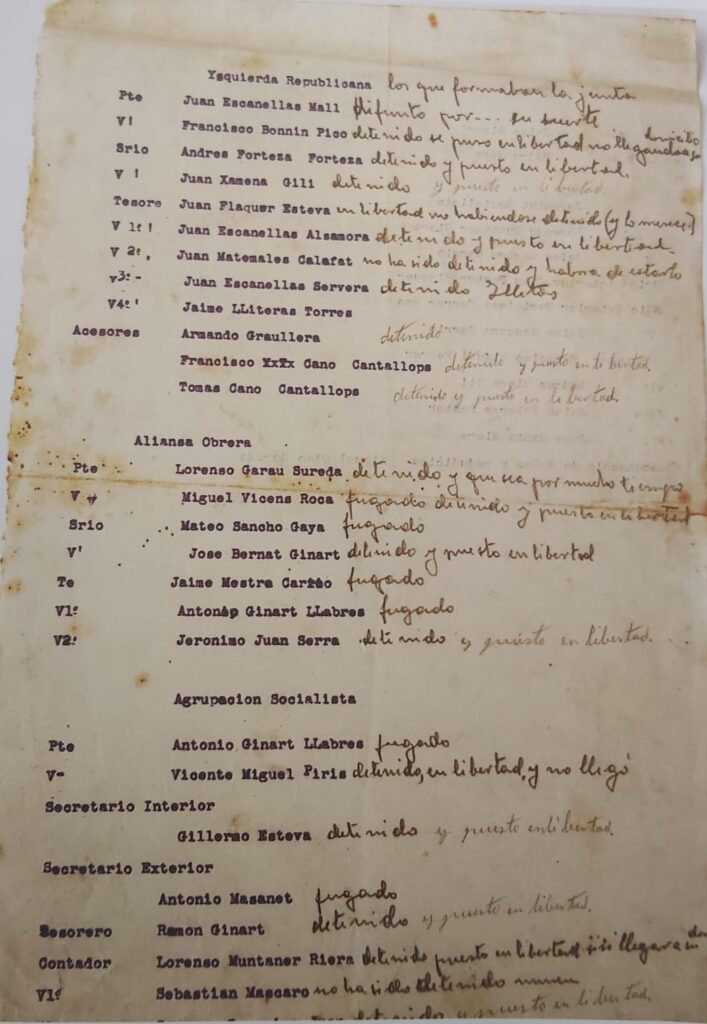 Ysquierda Republicana los que formaban la junta
Pte Juan Escanellas Mall difunto por... su suerte
V! Francisco Bonnin Pico detenido se puso en libertad no llegando a su domicilio
Srio Andres Forteza Forteza detenido y puesto en libertad.
V ! Juan Xamena Gili detenido y puesto en libertad.
Tesore Juan Flaquer Esteva en libertad no habiendose detenido (y lo merece)
V 1º! Juan Escanellas Alsamora detenido y puesto en libertad
V 2º, Juan Matemales Calafat no ha sido detenido y habria de estarlo
V3º- Juan Escanellas Servera detenido Illetas
V4º' Jaime LLiteras Torres
Acesores Armando Graullera detenido
Francisco XxTx Cano Cantallops detenido y puesto en libertad.
Tomas Cano Cantallops detenido y puesto en libertad.
Aliansa Obrera
Pte Lorenso Garau Sureda detenido y que sea por mucho tiempo
V Miguel Vicens Roca fugado detenido y puesto en libertad
Srio Mateo Sancho Gaya fugado
V' Jose Bernat Ginart detenido y puesto en libertad
Te Jaime Mestra fugado
V1º Antonio Ginart LLabres fugado
V2º Jeronimo Juan Serra detenido y puesto en libertad.
Agrupacion Socialista
Pte Antonio Ginart LLabres fugado
V- Vicente Miguel Piris detenido, en libertad, y no llegó
Secretario Interior
Gillermo Esteva detenido y puesto en libertad
Secretario Exterior
Antonio Masanet fugado
Tesorero Ramon Ginart detenido y puesto en libertad.
Contador Lorenso Muntaner Riera detenido puesto en libertad sin llegar a su
V1º Sebastian Mascaro no ha sido detenido nunca
y puesto en libertad.